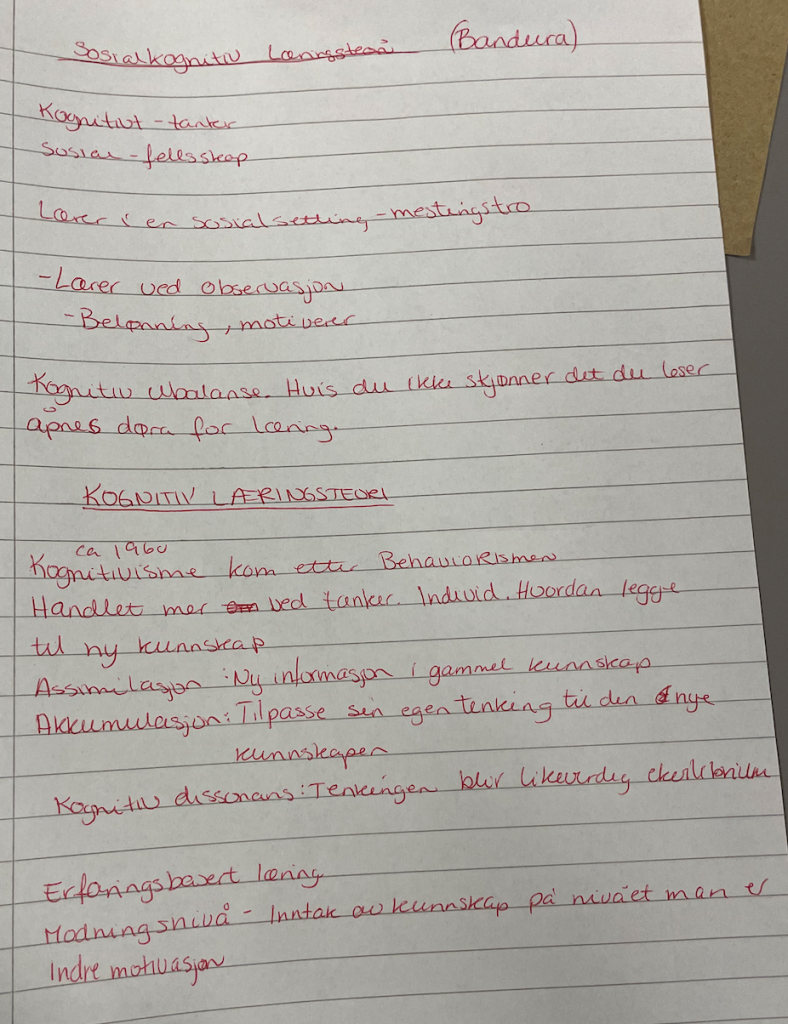 Sosialkognitiv Læringsteori (Bandura)
Kognitivt - tanker
Sosial - fellesskap
Lærer i en sosial setting - mestringstro
- Lærer ved observasjon
- Belønning, motiverer
Kognitiv ubalanse. Hvis du ikke skjønner det du leser
åpnes døra for læring.
KOGNITIV LÆRINGSTEORI
ca 1960
Kognitivisme kom etter Behaviorismen
Handlet mer ved tanker. Individ. Hvordan legge
til ny kunnskap
Assimilasjon: Ny informasjon i gammel kunnskap
Akkumulasjon: Tilpasse sin egen tenking til den nye
kunnskapen
Kognitiv dissonans: Tenkingen blir likeverdig
Erfaringsbasert læring
Modningsnivå - Inntak av kunnskap på nivået man er
Indre motivasjon